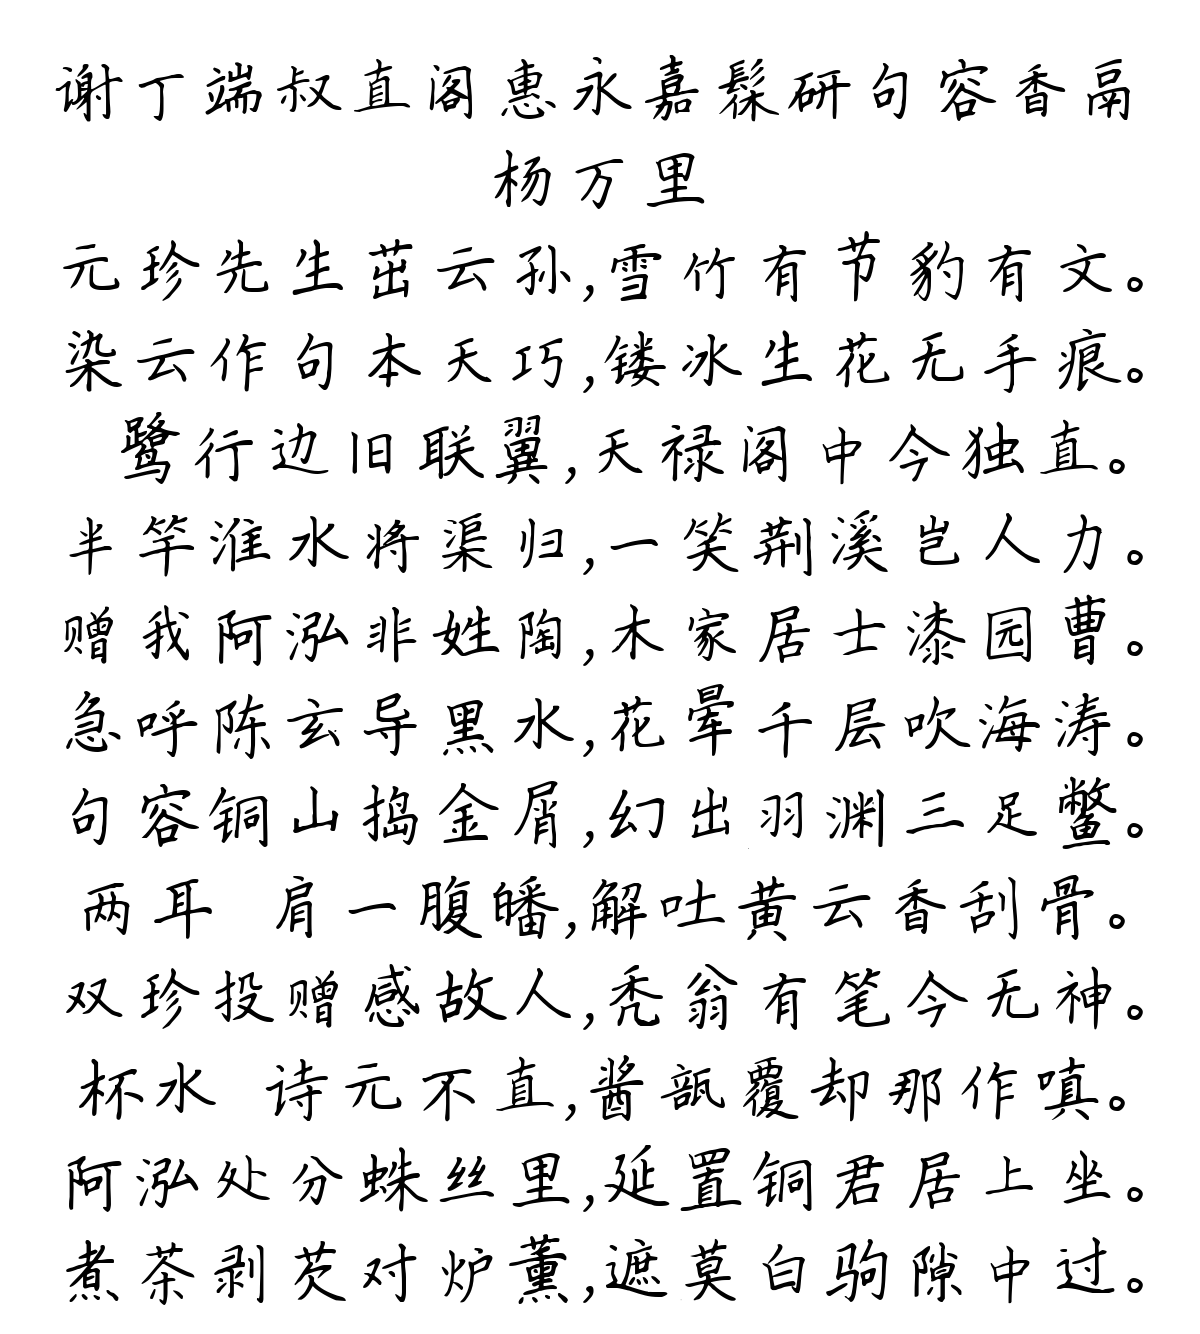 谢丁端叔直阁惠永嘉髹研句容香鬲
杨万里
元珍先生茁云孙,雪竹有节豹有文。
染云作句本天巧,镂冰生花无手痕。
鹭行边旧联翼,天禄阁中今独直。
半竿淮水将渠归,一笑荆溪岂人力。
赠我阿泓非姓陶,木家居士漆园曹。
急呼陈玄导黑水,花晕千层吹海涛。
句容铜山捣金屑,幻出羽渊三足鳖。
两耳 肩一腹皤,解吐黄云香刮骨。
双珍投赠感故人,秃翁有笔今无神。
杯水 诗元不直,酱瓿覆却那作嗔。
阿泓处分蛛丝里,延置铜君居上坐。
煮茶剥芡对炉薰,遮莫白驹隙中过。